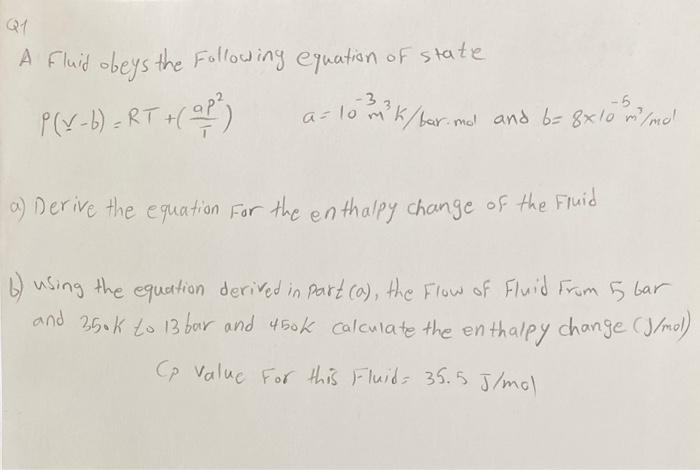 Q1
A Fluid obeys the Following equation of state
P(V-b) = RT + (aP²/T) a = 10⁻³ m³K/bar.mol and b= 8x10⁻⁵ m³/mol
a) Derive the equation For the enthalpy change of the Fluid
b) using the equation derived in part (a), the Flow of Fluid From 5 bar
and 350K to 13 bar and 450K calculate the enthalpy change (J/mol)
Cp value For this Fluid= 35.5 J/mol